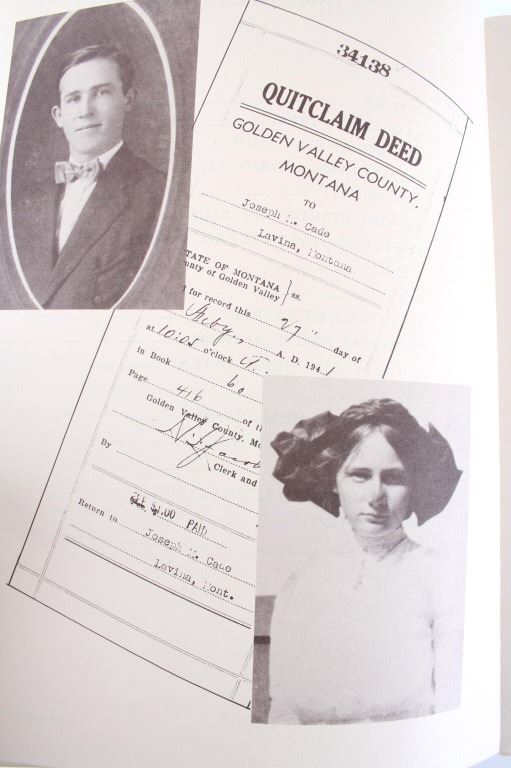 34138
QUITCLAIM DEED
GOLDEN VALLEY COUNTY,
MONTANA
TO
Joseph M. Cade
Lavina, Montana
STATE OF MONTANA } ss.
County of Golden Valley
for record this 27" day of
Feby., A. D. 1941
at 10:05 o'clock A.
in Book 60
Page 416 of the
Golden Valley County, Mo
Clerk and
By
FEE $1.00 PAID
Return to
Joseph M. Cade
Lavina, Mont.